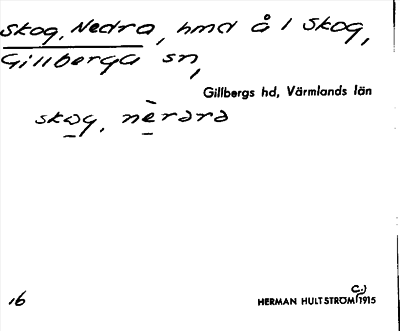 Skog, Nedra, hmd å 1 Skog,
Gillberga sn,
Gillbergs hd, Värmlands län
skog, nèrara
16
HERMAN HULTSTRÖM (C.) 1915